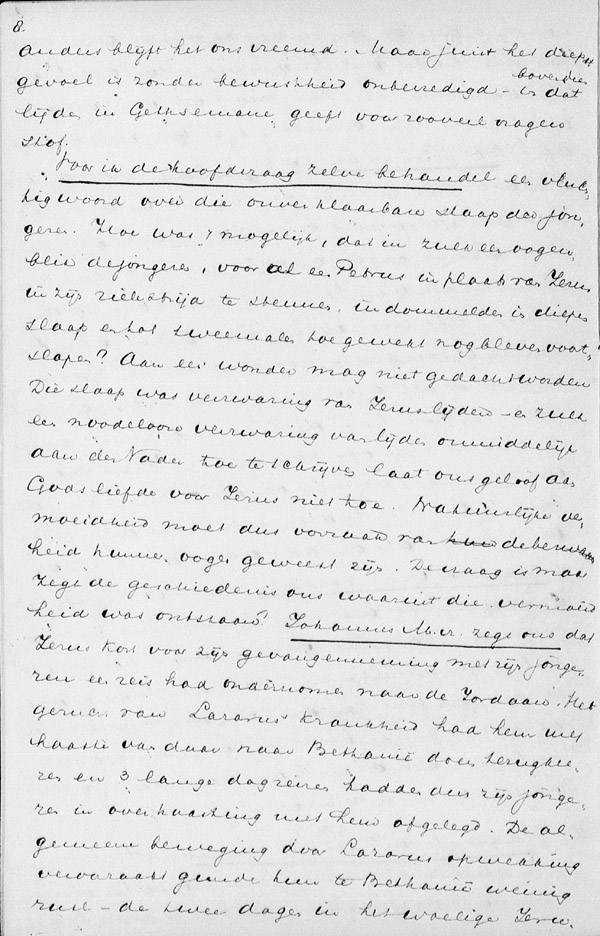 8.
anders blyft het ons vreemd. Maar juist het diepst
gevoel is zonder bewustheid onbevredigd – bovendien is dat
lijden in Gethsemane geeft voor zooveel vragen
stof.
Voor ik de hoofdvraag zelve behandel een vluch-
tig woord over die onverklaarbare slaap der jon-
geren. Hoe was 't mogelijk, dat in zulk een oogen-
blik de jongeren, vooral een Petrus in plaats van Jezus
in zijn zielestrijd te steunen, indommelden in diepen
slaap en tot tweemalen toe gewekt nog bleven voort-
slapen? Aan een wonder mag niet gedacht worden
Die slaap was verzwaring van Jezus lijden – en zulk
een noodeloore verzwaring van lijden onmiddelijk
aan den Vader toe te schrijven laat ons geloof aan
Gods liefde voor Jezus niet toe. Natuurlijke ver-
moeidheid moet dus oorzaak van de bezwaard
heid hunner oogen geweest zijn. De vraag is maar
zegt de geschiedenis ons waaruit die vermoeid
heid was ontstaan? Johannes M.v. zegt ons dat
Jezus kort voor zijn gevangenneming met zijn jonge-
ren een reis had ondernomen naar de Jordaan. Het
gerucht van Lazarus' krankheid had hem met
haaste van daar naar Bethanië doen terugkee-
ren en 3 lange dagreizen hadden dus zijn jonge-
ren in overhaasting met hem afgelegd. De al-
gemeene beweging door Lazarus opwekking
veroorzaakt gunde hun te Bethanië weinig
rust – de twee dagen in het woelige Jeru-